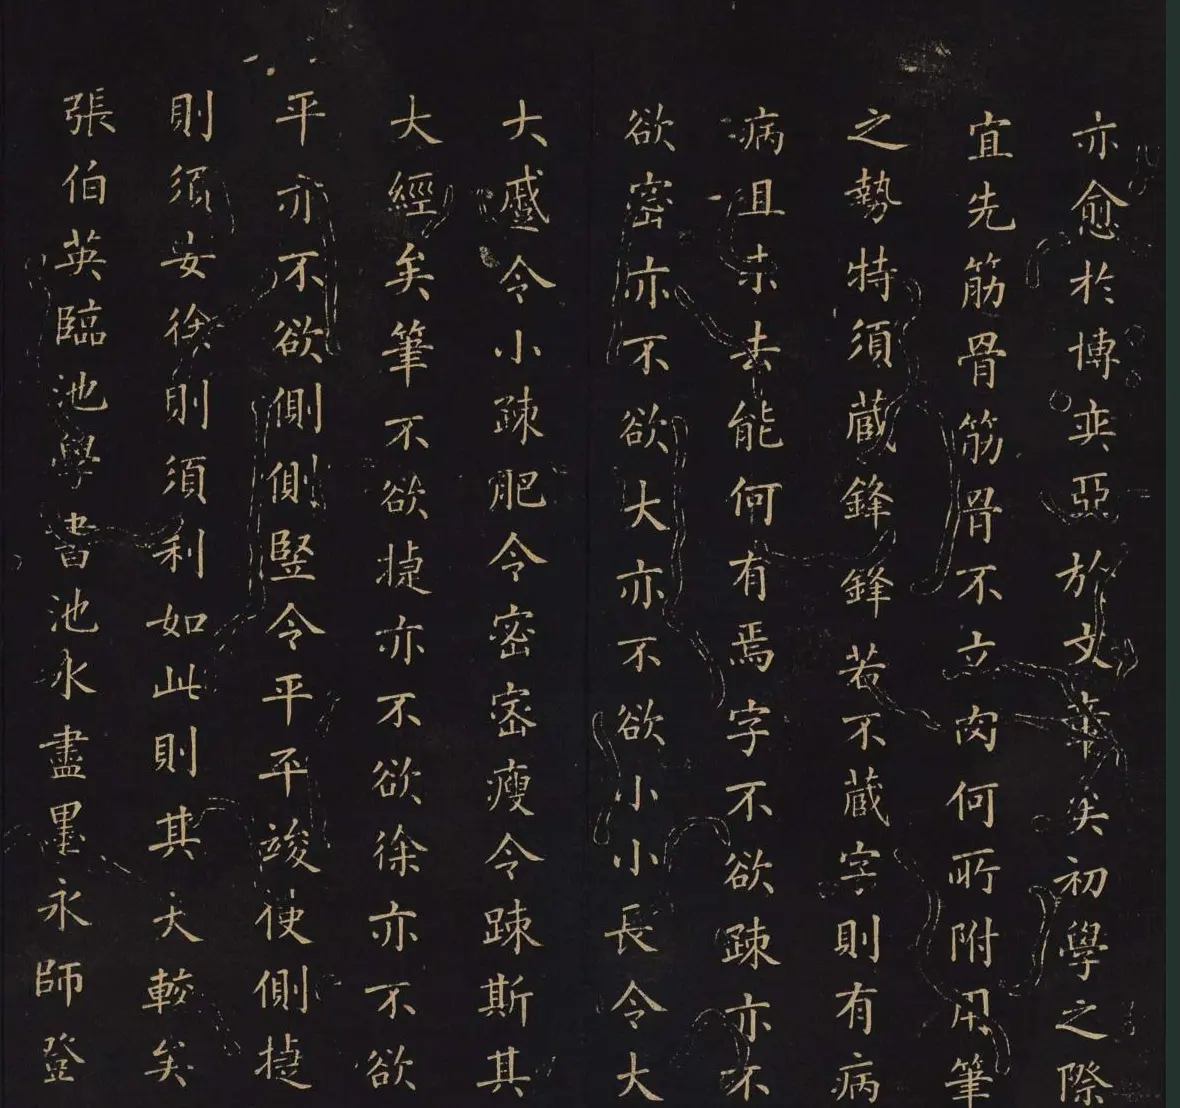 亦愈於博弈亞於文章矣初學之際
宜先筋骨筋骨不立肉何所附用筆
之勢特須藏鋒鋒若不藏字則有病
病且未去能何有焉字不欲疎亦不
欲密亦不欲大亦不欲小小長令大
大蹙令小疎肥令密密瘦令疎斯其
大經矣筆不欲揵亦不欲徐亦不欲
平亦不欲側側竪令平平竣使側揵
則須安徐則須利如此則其大較矣
張伯英臨池學書池水盡墨永師登